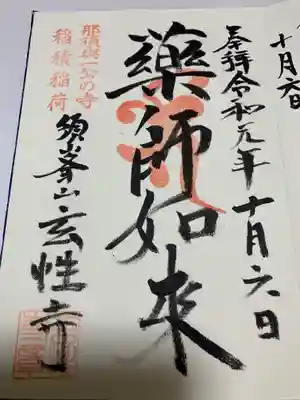 奉拝令和元年十月六日
藥師如来
那須與一公の寺
稲積稲荷
須峯山玄性寺
十月六日